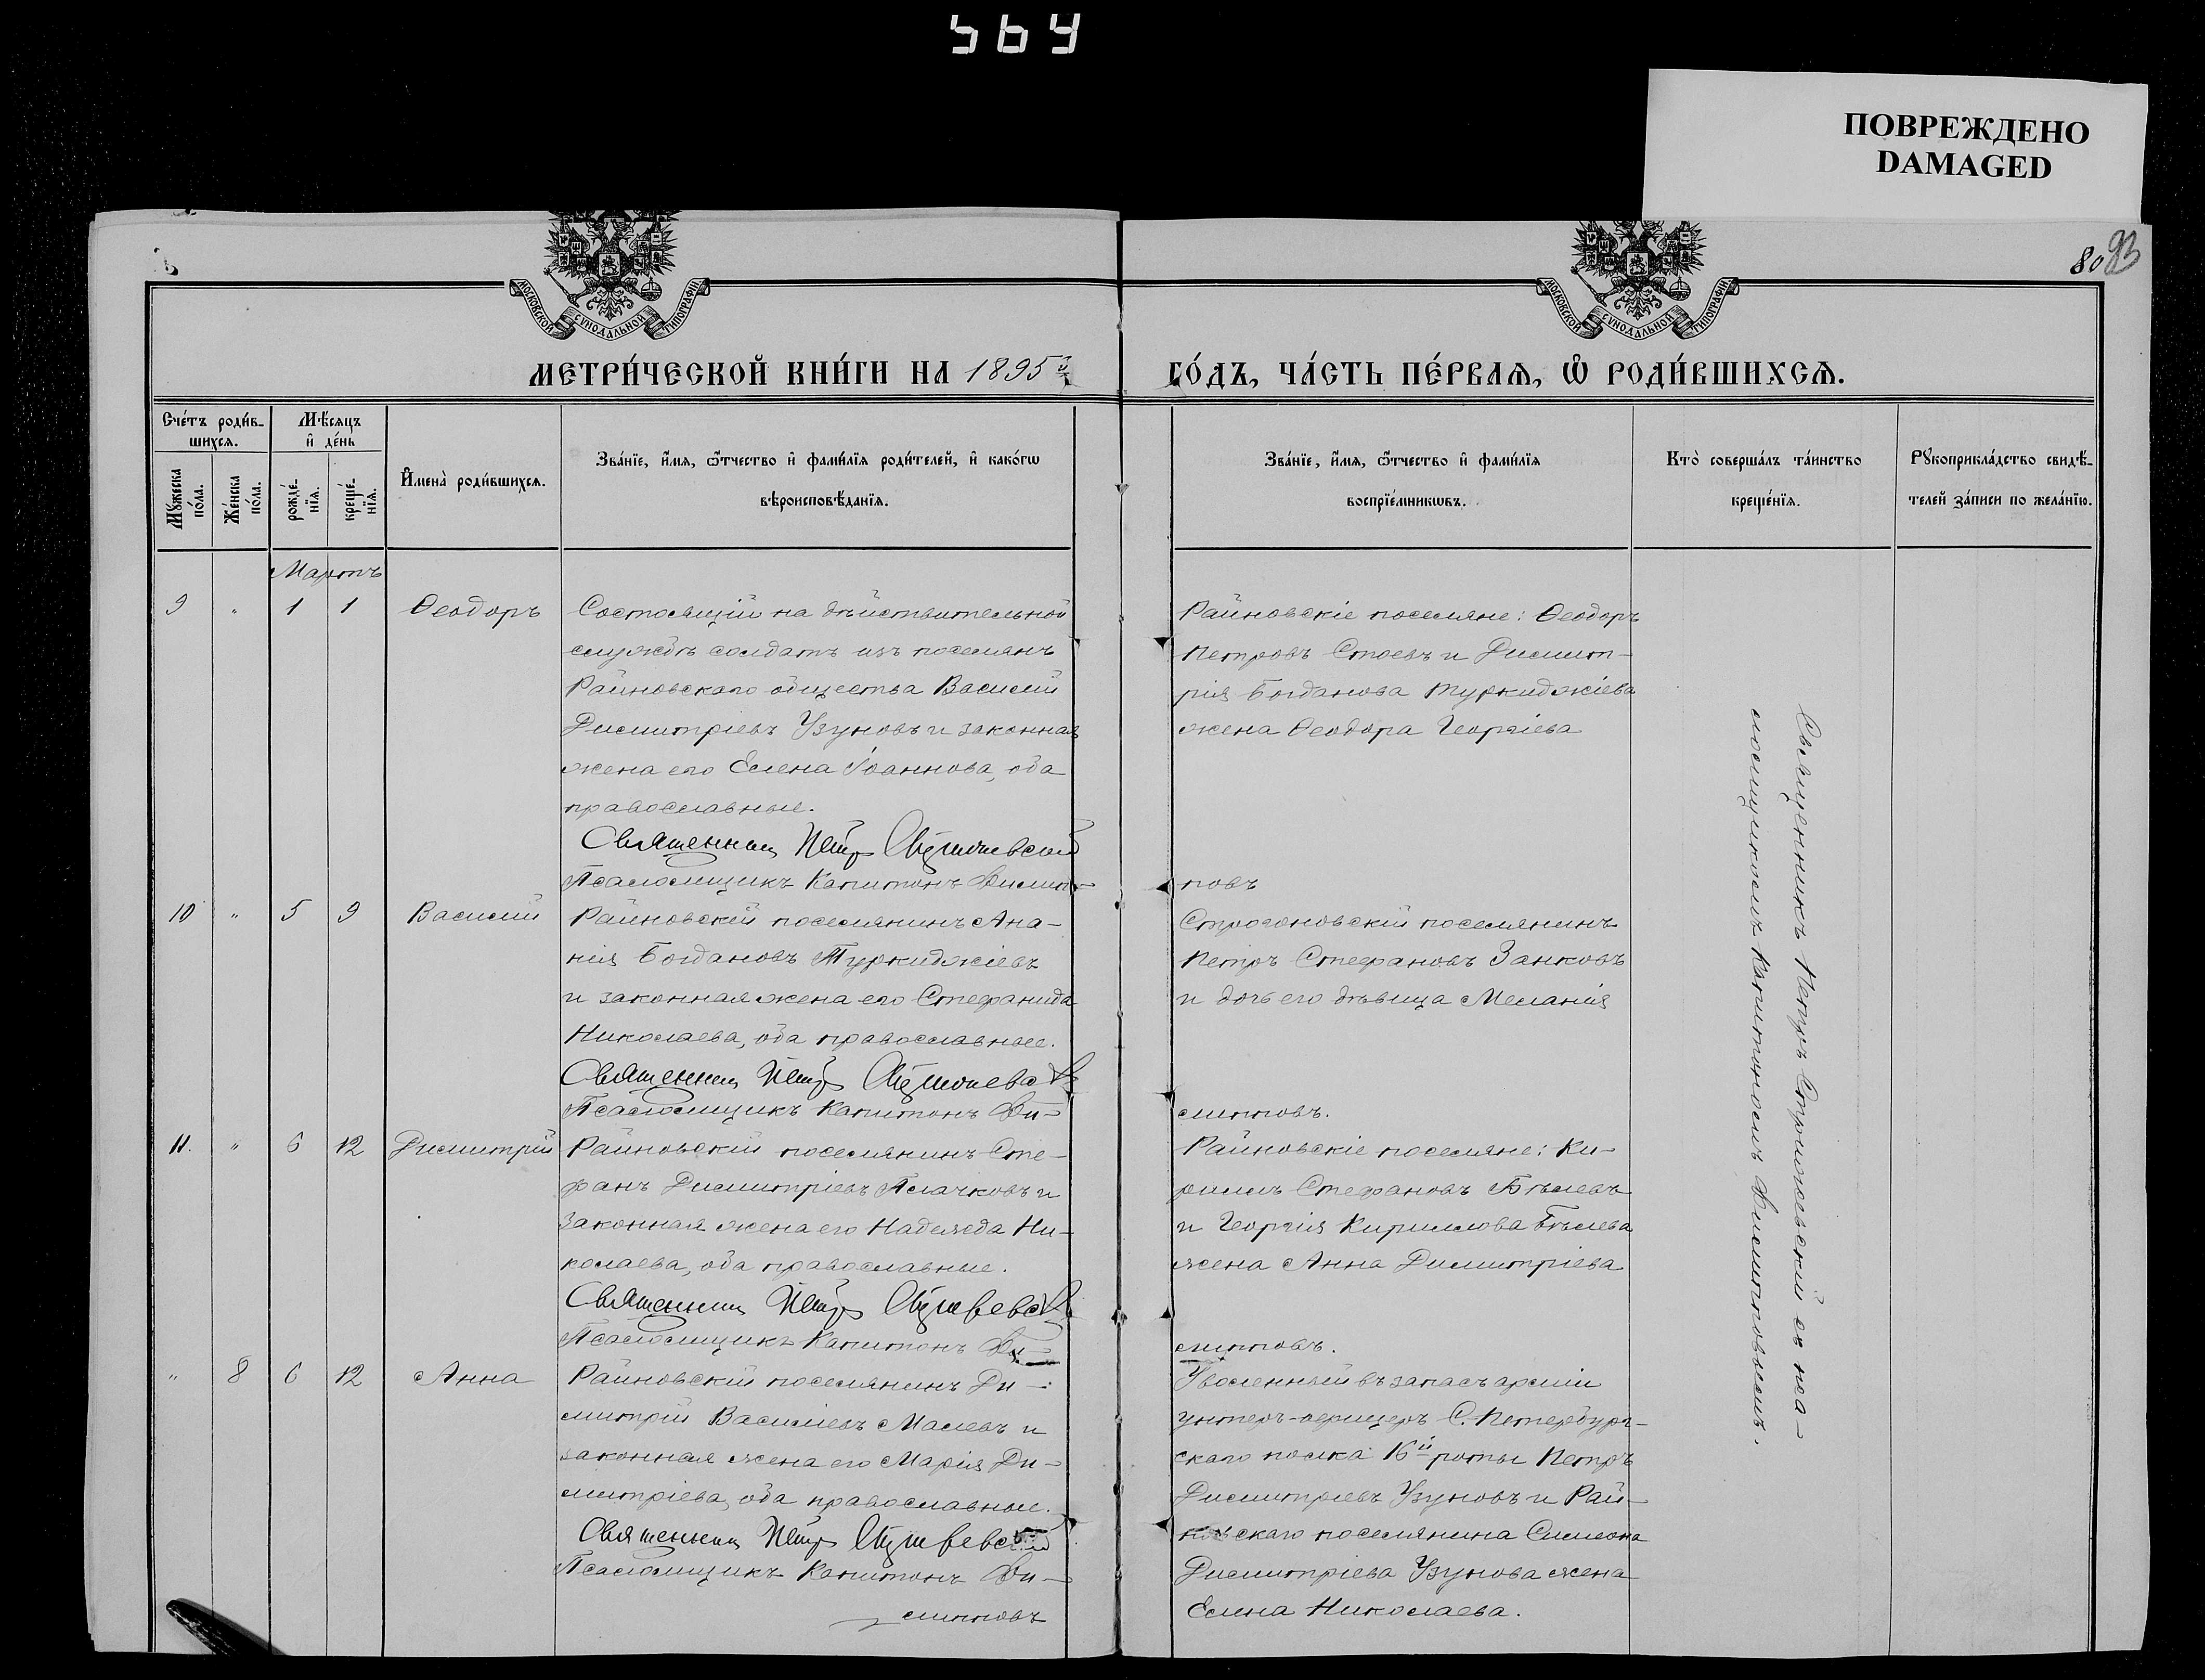 569
ПОВРЕЖДЕНО
DAMAGED
80 93
МОСКОВСКОЙ СѴНОДАЛЬНОЙ ТИПОГРАФІИ
МОСКОВСКОЙ СѴНОДАЛЬНОЙ ТИПОГРАФІИ
МЕТРИ́ЧЕСКОЙ КНИ́ГИ НА 1895й
ГО́ДЪ, ЧА́СТЬ ПЕ́РВАѦ, Ѡ҆ РОДИ́ВШИХСѦ.
Сче́тъ роди́в-
шихсѧ.
Мꙋ́жеска
по́ла.
Же́нска
по́ла.
Мѣ́сѧцъ
и҆ де́нь
рожде́-
нїѧ.
креще́-
нїѧ.
И҆мена̀ роди́вшихсѧ.
Зва́нїе, и҆́мѧ, ѻ҆́тчество и҆ фами́лїѧ роди́телей, и҆ како́гѡ
вѣроисповѣ́данїѧ.
Зва́нїе, и҆́мѧ, ѻ҆́тчество и҆ фами́лїѧ
воспрїе́мникѡвъ.
Кто̀ соверша́лъ та́инство
креще́нїѧ.
Рꙋкоприкла́дство свидѣ́-
телей за́писи по жела́нїю.
Мартъ
9 " 1 1 Ѳеодоръ
Состоящій на дѣйствительной
службѣ солдатъ изъ поселянъ
Райновскаго общества Василій
Димитріевъ Узуновъ и законная
жена его Елена Іоаннова, оба
православные.
Священник Петр
Псаломщикъ Капитонъ Филип-
Райновскіе поселяне: Ѳеодоръ
Петровъ Стоевъ и Димит-
рія Богданова Туркиджіева
жена Ѳеодора Георгіева
повъ
10 " 5 9 Василій
Райновскій поселянинъ Ана-
нія Богдановъ Туркиджіевъ
и законная жена его Стефанида
Николаева, оба православные.
Священник Петр
Псаломщикъ Капитонъ Фи-
Строгоновскій поселянинъ
Петръ Стефановъ Занковъ
и дочь его дѣвица Меланія
липповъ.
11. " 6 12 Димитрій
Райновскій поселянинъ Сте-
фанъ Димитріевъ Плачковъ и
законная жена его Надежда Ни-
колаева, оба православные.
Священник Петр
Псаломщикъ Капитонъ Фи-
Райновскіе поселяне: Ки-
риллъ Стефановъ Бѣлевъ
и Георгія Кириллова Бѣлева
жена Анна Димитріева
липповъ.
" 8 6 12 Анна
Райновскій поселянинъ Ди-
митрій Василіевъ Малевъ и
законная жена его Марія Ди-
митріева, оба православные.
Священник Петр
Псаломщикъ Капитонъ Фи-
липповъ
Уволенный въ запасъ арміи
унтеръ-офицеръ С. Петербург-
скаго полка 16й роты Петръ
Димитріевъ Узуновъ и Рай-
новскаго поселянина Симеона
Димитріева Узунова жена
Елена Николаева.
Священникъ Петръ съ пса-
ломщикомъ Капитономъ Филипповымъ.